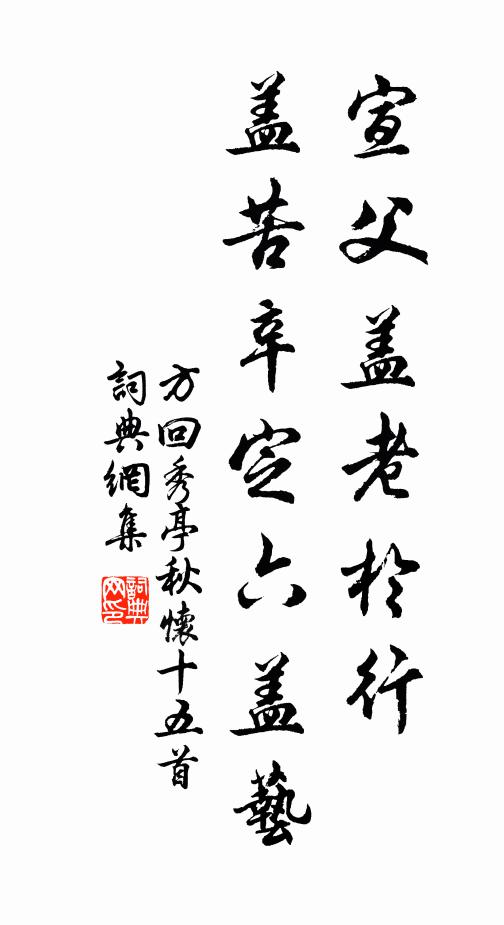 宣父盖老於行
盖苦辛定六盖藝
方回秀亭秋懷十五首
詞典網集
詞典网印